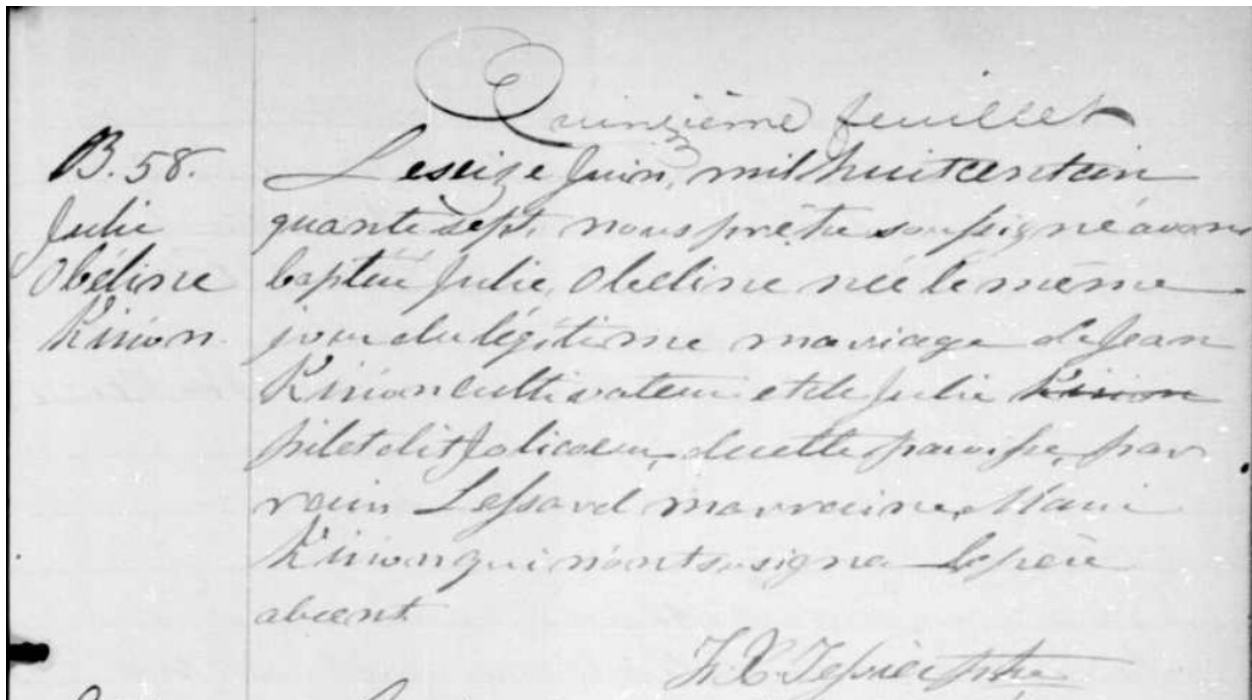 Quinzième feuillet
B.58.
Julie
Obéline
Kirion.
Le seize Juin, mil huit cent cin
quante sept, nous prêtre soussigné avons
baptisé Julie, Obeline née le même
jour du légitime mariage de Jean
Kirion cultivateur et de Julie Kirion
pilet dit Jolicoeur, de cette paroisse, par
rain Lessard marraine, Marie
Kirion qui n'ont su signer le père
absent
F. X. Tessier ptre